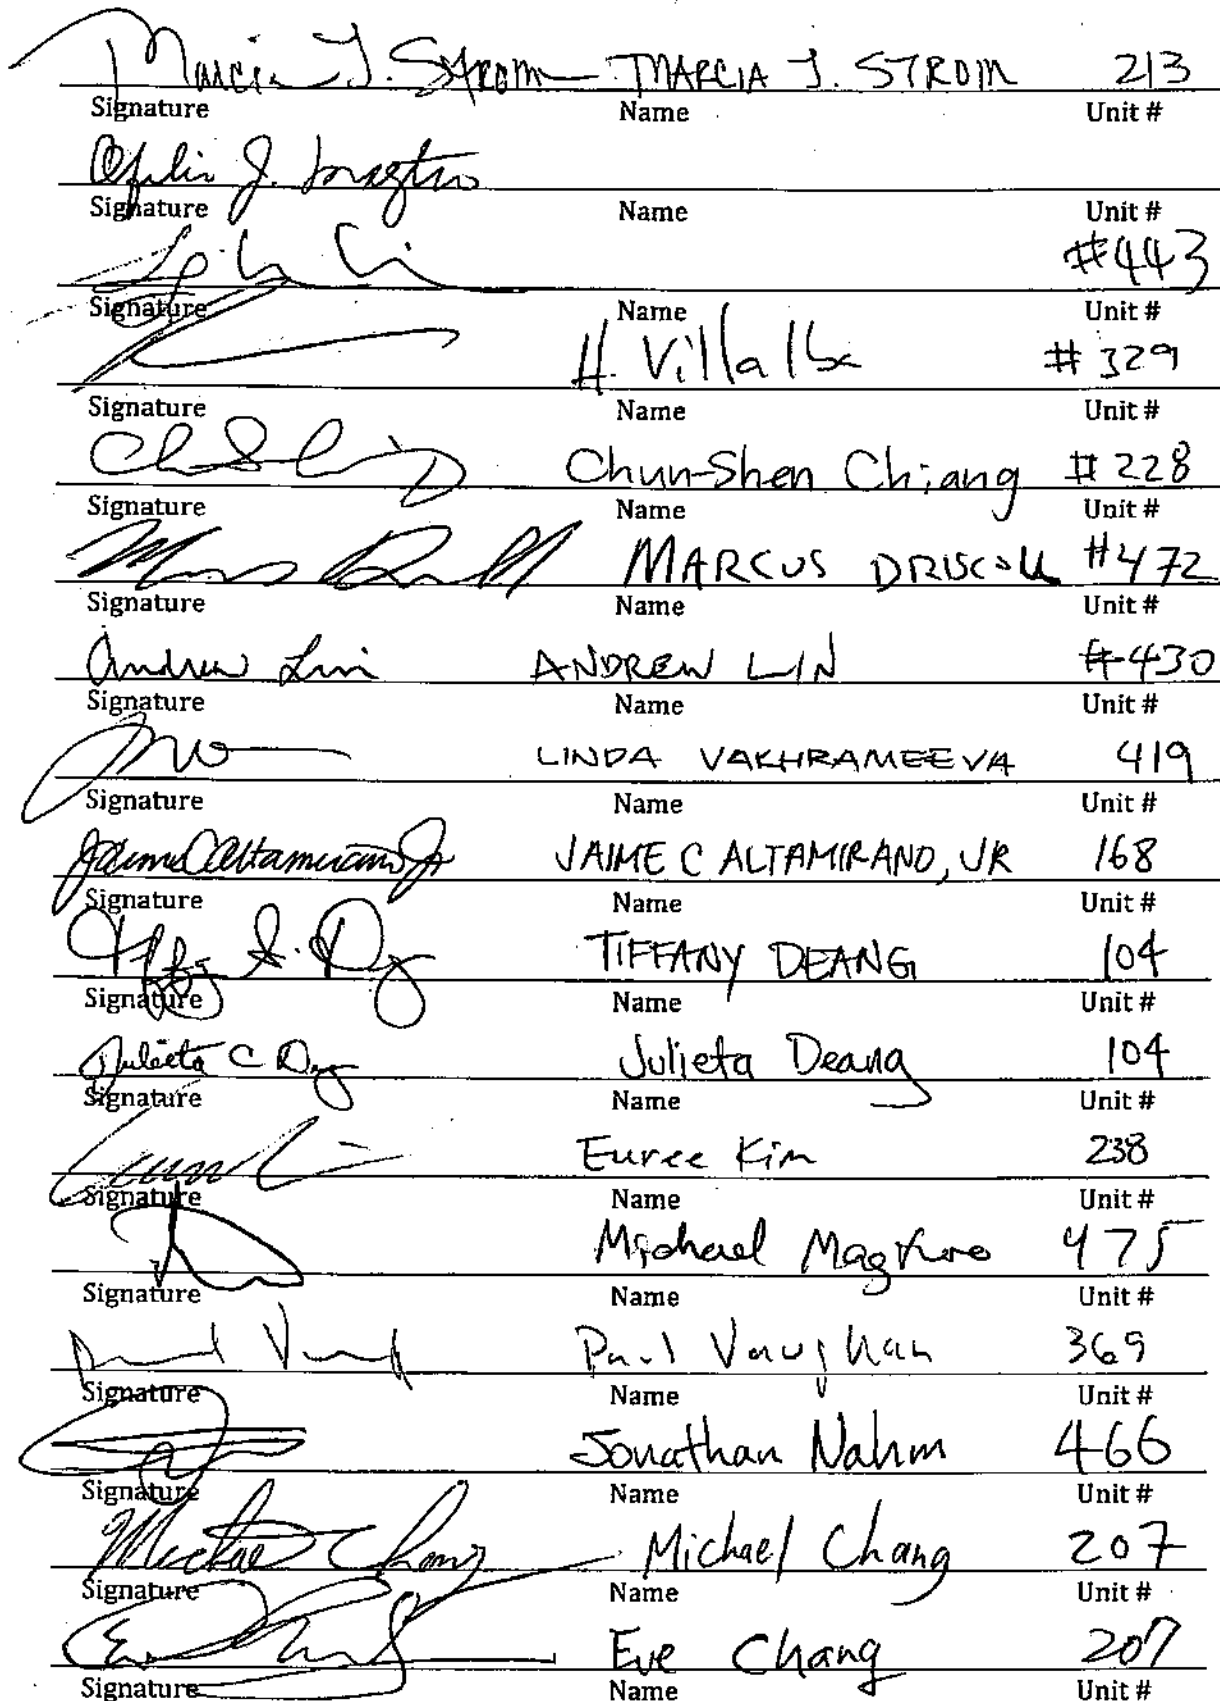 Marcia J. Strom MARCIA J. STROM 213
Signature Name Unit #
J.
Signature Name Unit #
#443
Signature Name Unit #
H. Villalba #329
Signature Name Unit #
Chun-Shen Chiang #228
Signature Name Unit #
MARCUS DRISCOLL #472
Signature Name Unit #
Andrew Lin ANDREW LIN #430
Signature Name Unit #
LINDA VAKHRAMEEVA 419
Signature Name Unit #
Jaime C Altamirano Jr JAIME C ALTAMIRANO, JR 168
Signature Name Unit #
TIFFANY DEANG 104
Signature Name Unit #
Julieta C Julieta Deang 104
Signature Name Unit #
Euree Kim 238
Signature Name Unit #
Michael 475
Signature Name Unit #
Paul Vaughan 369
Signature Name Unit #
Jonathan Nahm 466
Signature Name Unit #
Michael Chang Michael Chang 207
Signature Name Unit #
Eve Chang 207
Signature Name Unit #